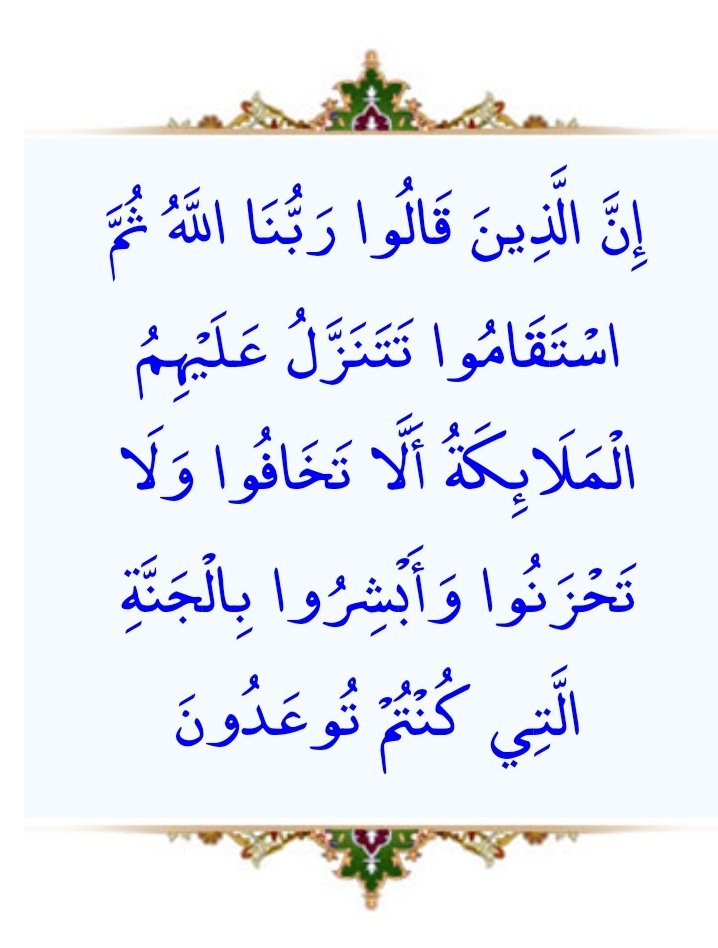 إِنَّ الَّذِينَ قَالُوا رَبُّنَا اللَّهُ ثُمَّ
اسْتَقَامُوا تَتَنَزَّلُ عَلَيْهِمُ
الْمَلَائِكَةُ أَلَّا تَخَافُوا وَلَا
تَحْزَنُوا وَأَبْشِرُوا بِالْجَنَّةِ
الَّتِي كُنْتُمْ تُوعَدُونَ